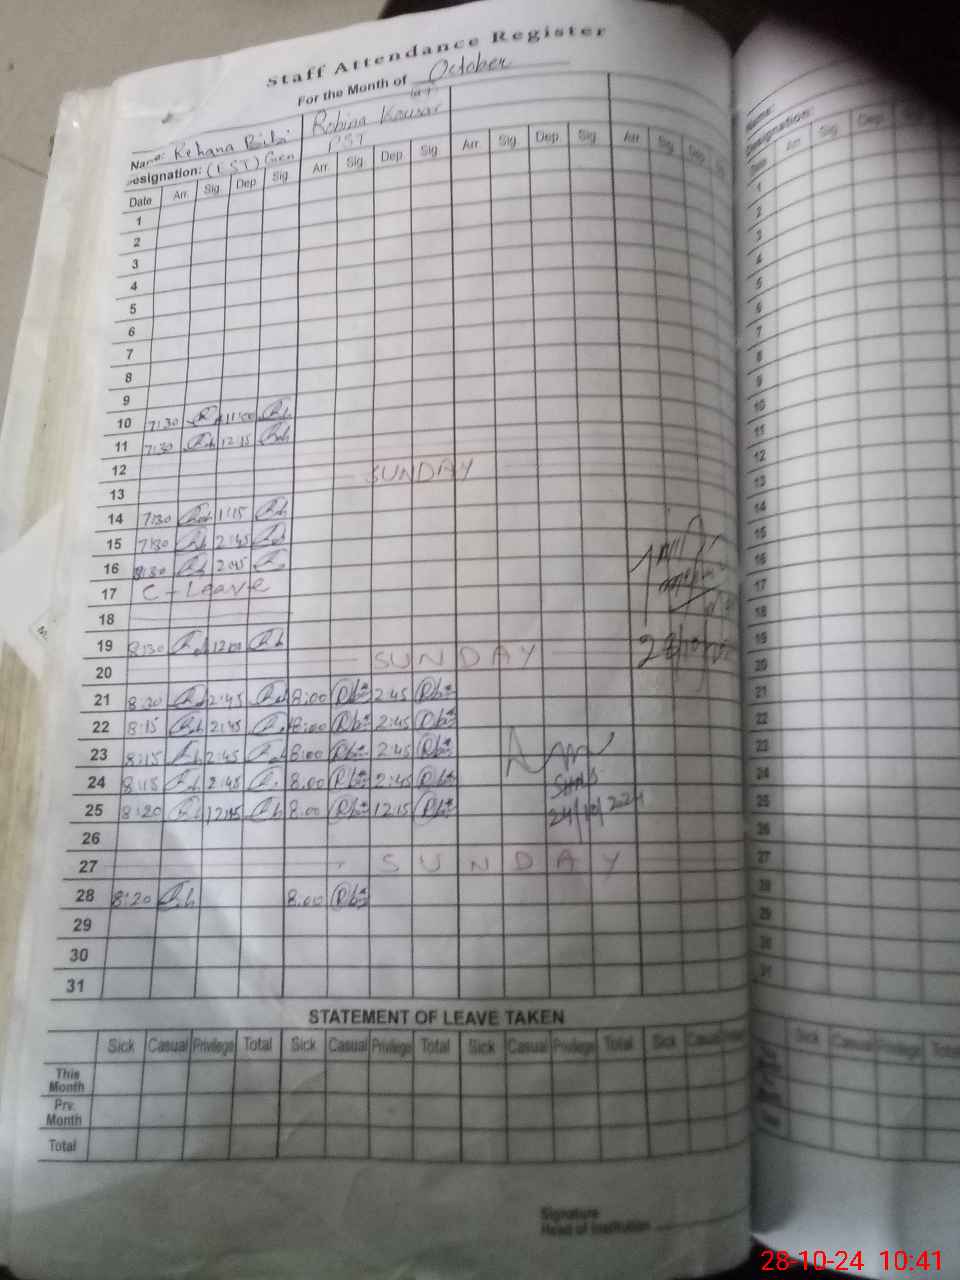 Staff Attendance Register
For the Month of October
Name: Rehana Bibi Robina Kousar
Designation: (EST) Gen PST
Date Arr. Sig. Dep Sig. Arr. Sig. Dep Sig. Arr. Sig. Dep Sig. Arr Sig. Dep
1
2
3
4
5
6
7
8
9
10 7:30 11:00
11 7:30 12:15
12 SUNDAY
13
14 7:30 1:15
15 7:30 2:45
16 8:30 2:45
17 C-Leave
18
19 8:30
20 SUNDAY
21 8:20 2:45 8:00 2:45
22 8:15 2:45 8:00 2:45
23 8:15 2:45 8:00 2:45
24 8:15 2:45 8:00 2:45
25 8:20 12:15 8:00 12:15
24/10/2024
26
27 SUNDAY
28 8:20 8:00
29
30
31
STATEMENT OF LEAVE TAKEN
Sick Casual Privilege Total Sick Casual Privilege Total Sick Casual Privilege Total Sick Casual
This Month
Prv. Month
Total
Signature
Head of Institution
Name:
Designation:
Date Arr Sig Dep
1
2
3
4
5
6
7
8
9
10
11
12
13
14
15
16
17
18
19
20
21
22
23
24
25
26
27
28
29
30
31
Sick Casual Privilege Total
28-10-24 10:41